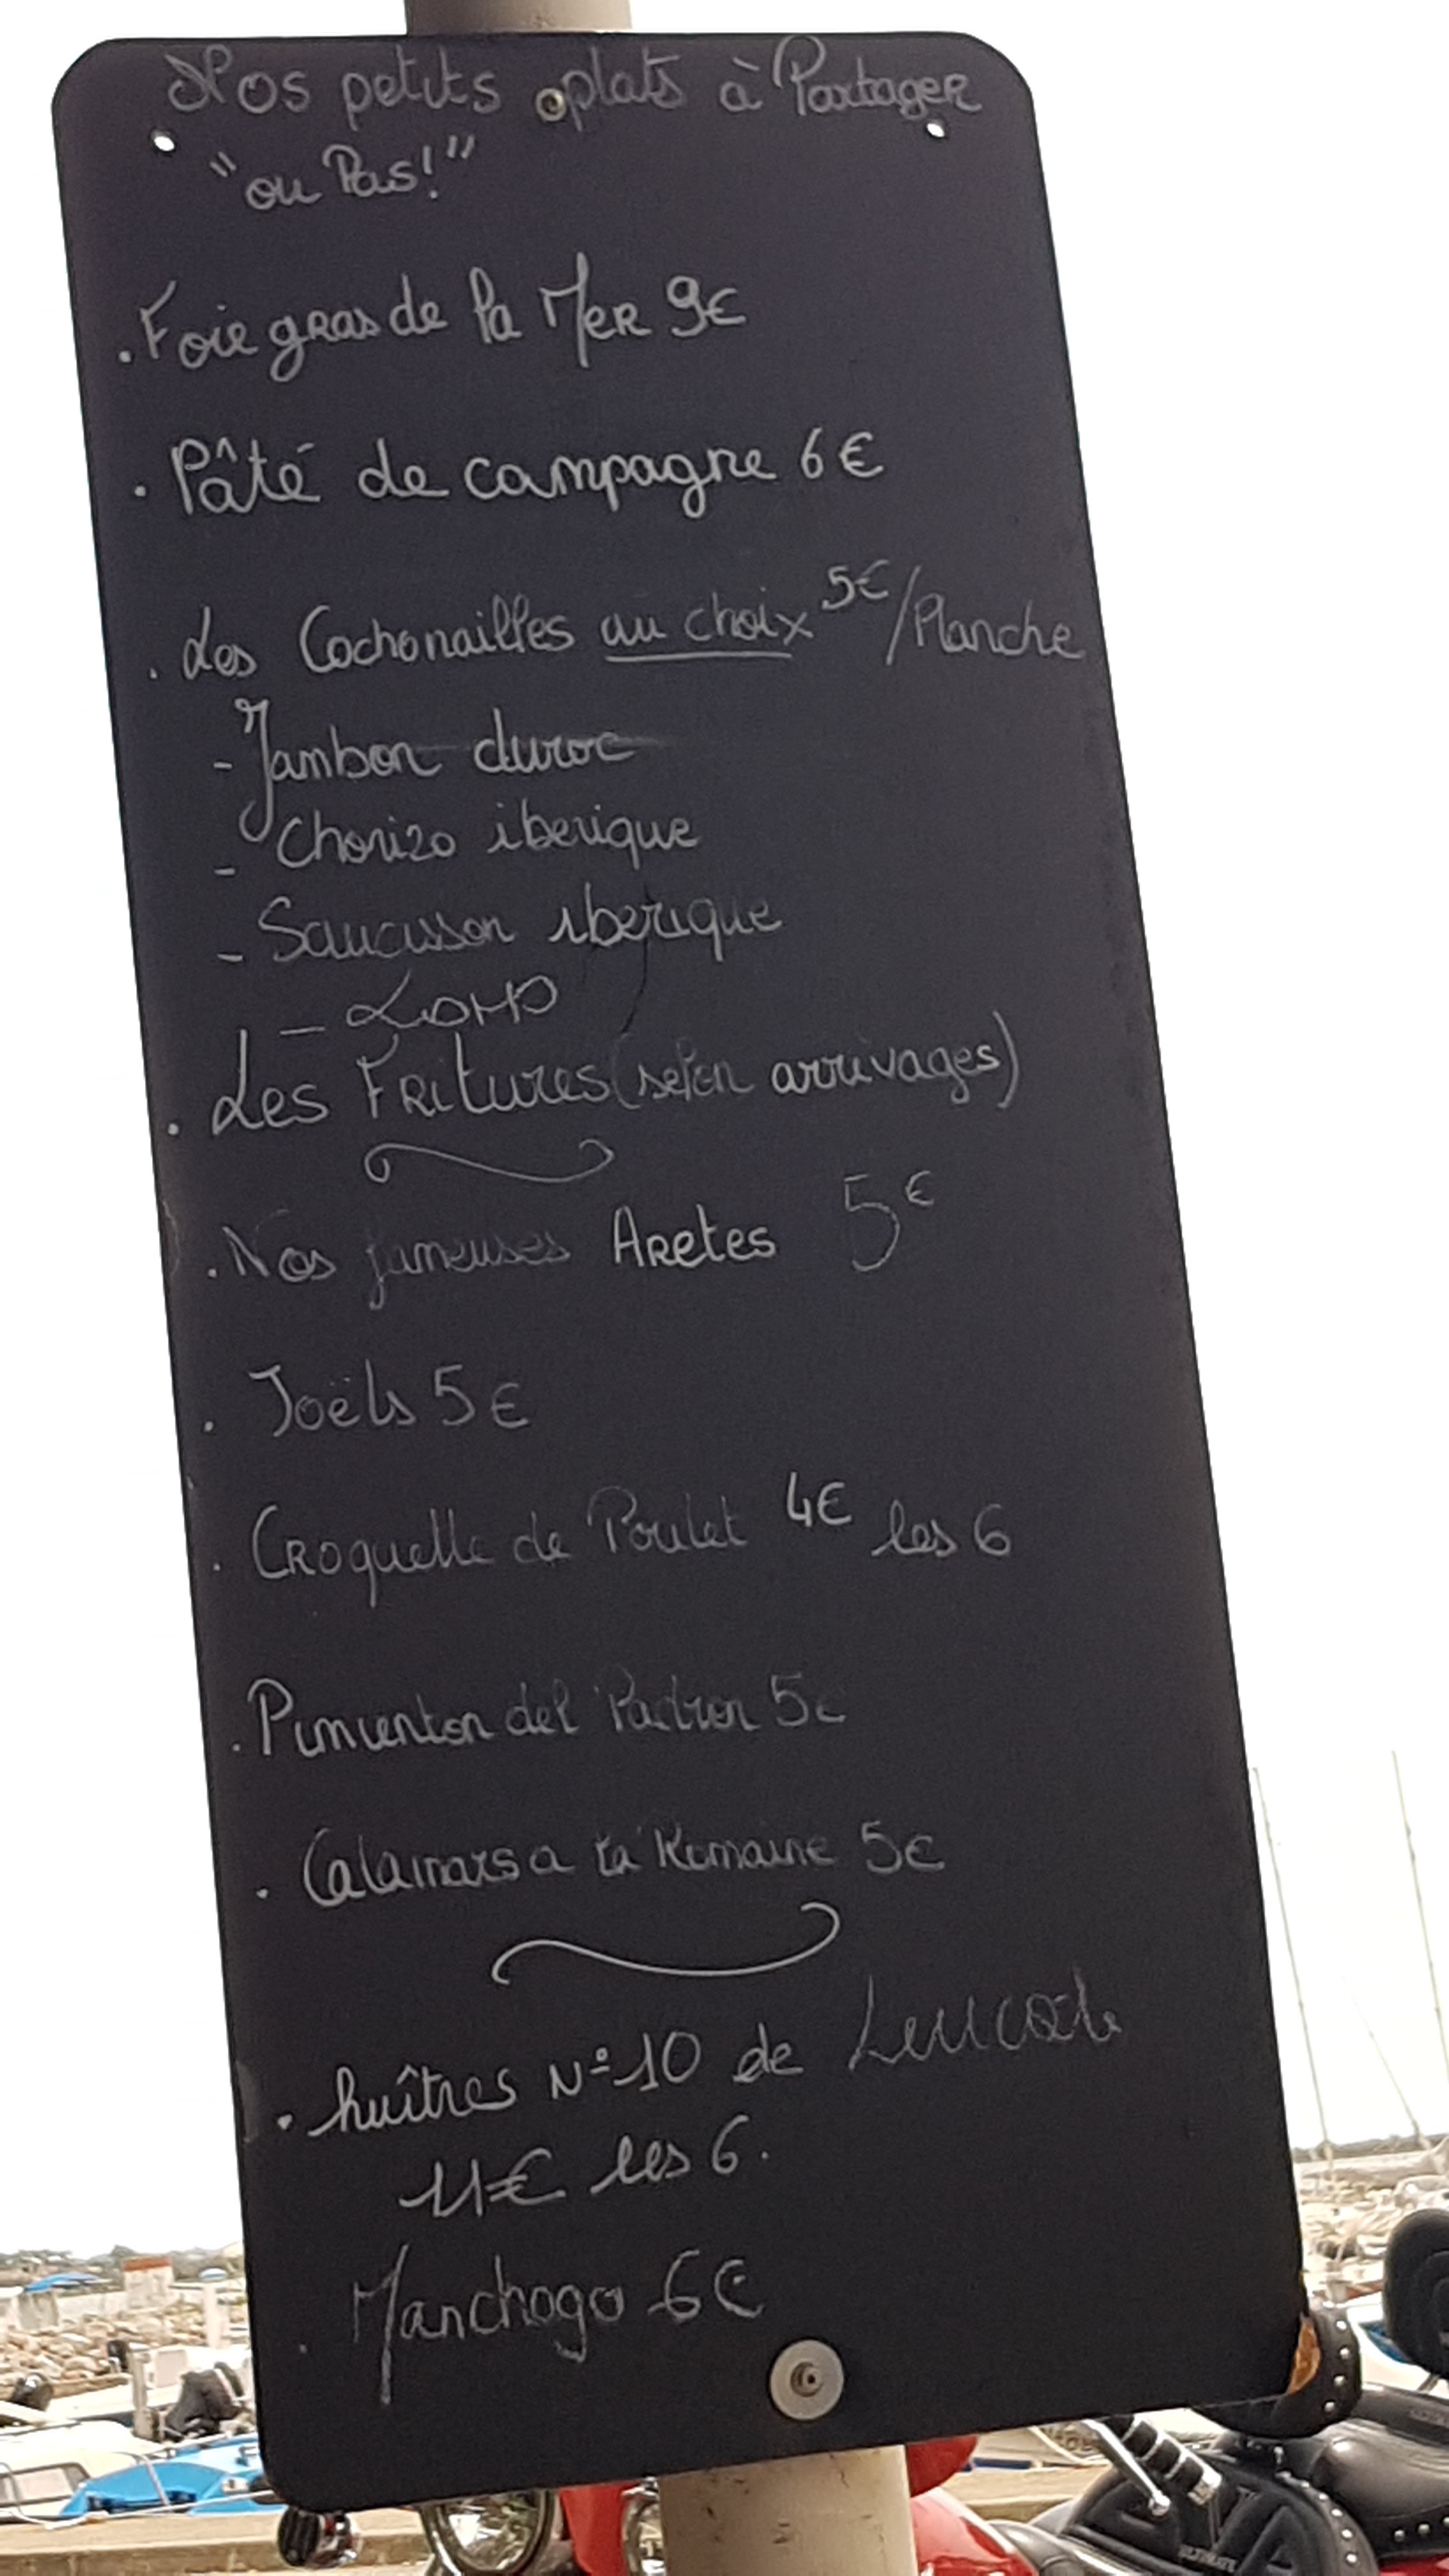 Nos petits plats à Partager
"ou Pas!"
. Foie gras de la Mer 9€
. Pâté de campagne 6€
. Les Cochonailles au choix 5€/Planche
- Jambon duroc
- Chorizo iberique
- Saucisson iberique
- LOMO
. Les Fritures (selon arrivages)
. Nos fameuses Aretes 5€
. Joëls 5€
. Croquette de Poulet 4€ les 6
. Pimienton del Padron 5€
. Calamars a la Romaine 5€
. huîtres N°10 de Leucate
11€ les 6.
. Manchogo 6€